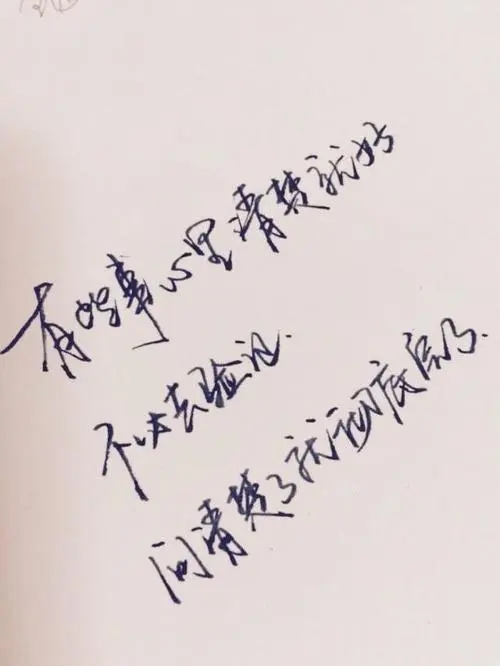 有些事心里清楚就好
不必去验证
问清楚了就彻底完了